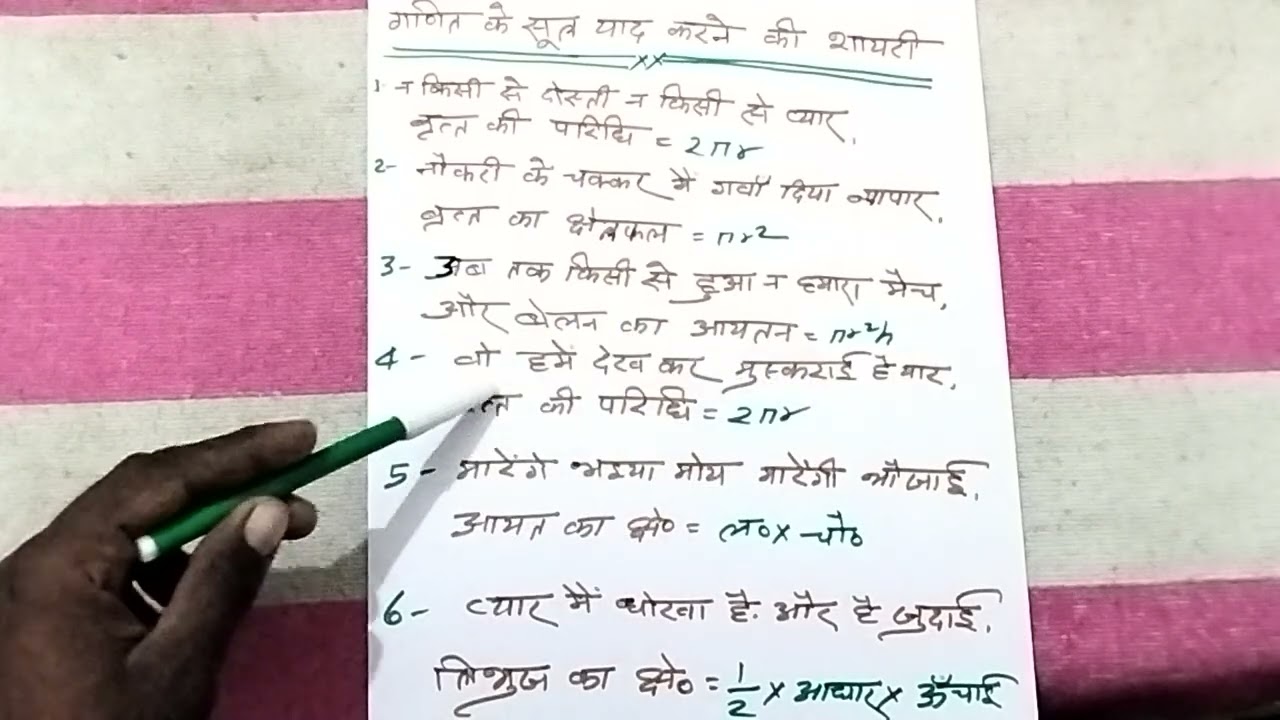 गणित के सूत्र याद करने की शायरी
××
1- न किसी से दोस्ती न किसी से प्यार,
वृत्त की परिधि = 2πr
2- नौकरी के चक्कर में गवाँ दिया व्यापार,
वृत्त का क्षेत्रफल = πr2
3- अब तक किसी से हुआ न हमारा मैच,
और बेलन का आयतन = πr²h
4- वो हमें देख कर मुस्कराई है यार,
की परिधि = 2πr
5- मारेंगे भइया मोय मारेंगी भौजाई,
आयत का क्षे० = ल० × चौ०
6- प्यार में धोखा है. और है जुदाई,
त्रिभुज का क्षे० = 1/2 × आधार × ऊँचाई